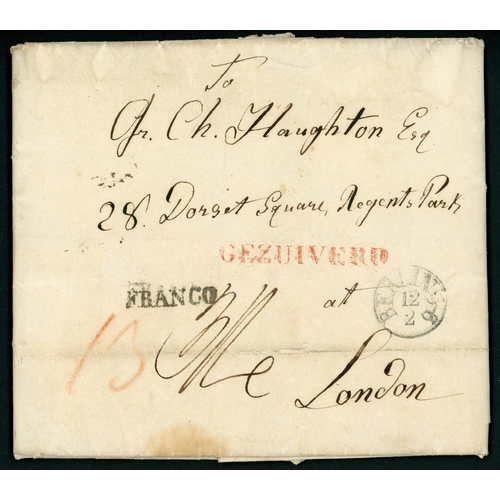 To
Gr. Ch. Haughton Esq
28. Dorset Square, Regents Park
GEZUIVERD
FRANCO
at
BERLIN 5-6
12
2
13
London